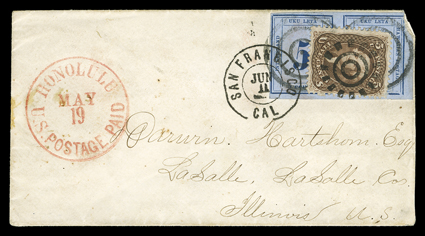 UKU LETA
UKU LETA
5
HONOLULU
MAY
19
U.S. POSTAGE PAID
SAN FRANCISCO
JUN
11
CAL
Darwin. Hartshorn. Esq
LaSalle. LaSalle Co.
Illinois U.S.